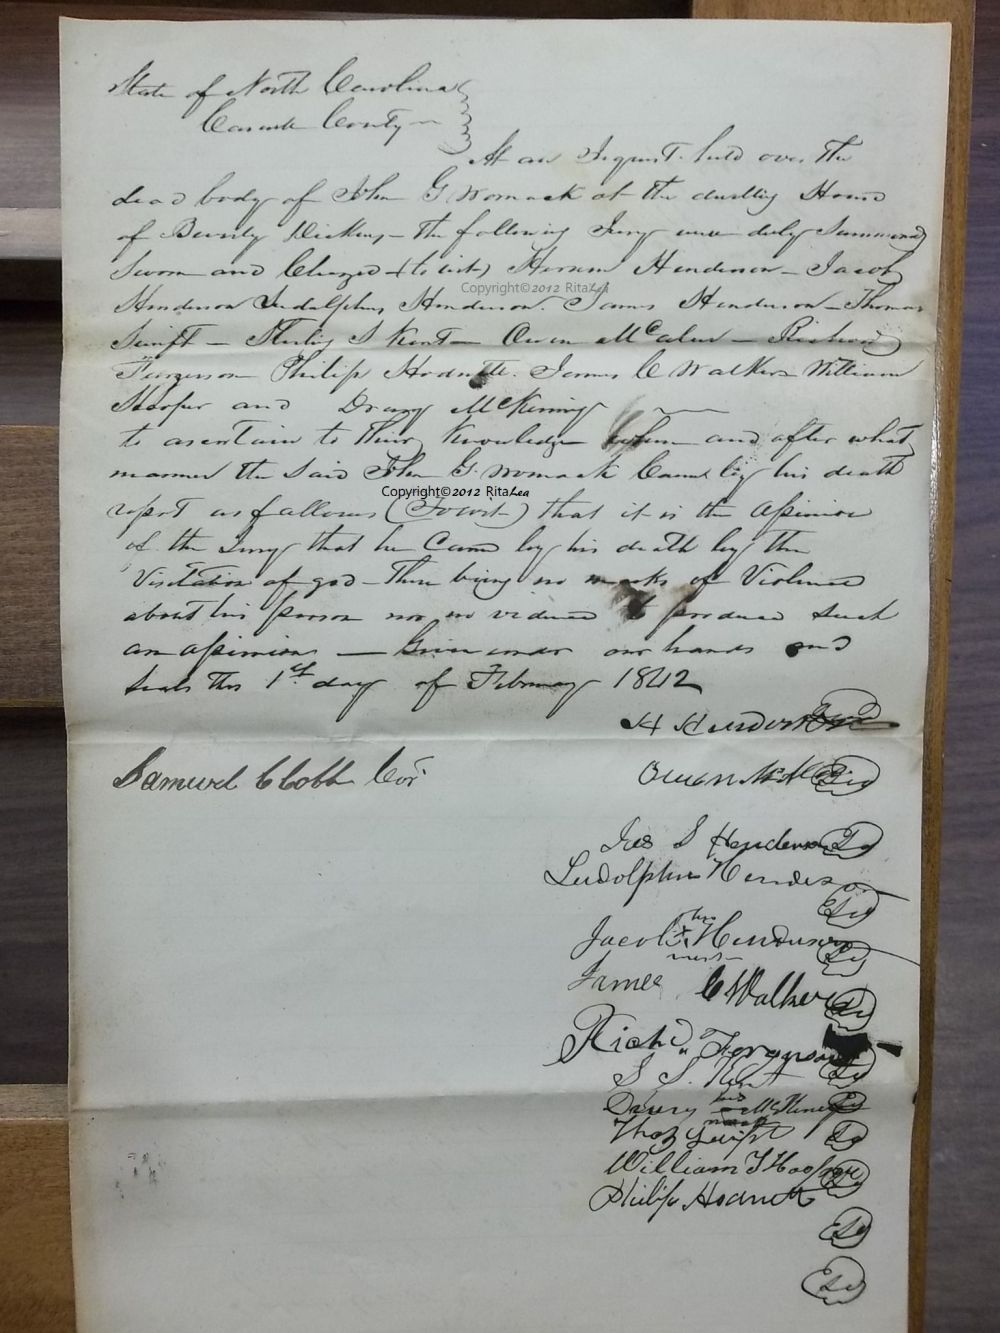 State of North Carolina
Caswell County
At an Inquest held over the
dead body of John G Womack at the dwelling House
of Beverly Dickens – the following Jury were duly Summoned
Sworn and Charged (to wit) Hiram Henderson – Jacob
Copyright©2012 RitaLea
Henderson Ludolphus Henderson. James Henderson – Thomas
Swift – Sterling S Kent – Owen McAleer – Richard
Furgerson Philip Hodnett. James C Walker William
Hooper and Drury McKinney
to ascertain to their Knowledge when and after what
manner the Said John G. Womack Came by his death
Copyright©2012 RitaLea
report as follows (Towit) that it is the Opinion
of the Jury that he Came by his death by the
Visitation of god – There being no marks of Violence
about his person nor no vidence to produce Such
an opinion – Given under our hands and
Seals this 1st day of February 1842
H Henderson
Samuel C Cobb Cor.
Owen
Jas S Henderson
Ludolphus Henderson
Jacob his x mark Henderson
James C Walker
Richd Ferguson
S S. Kent
Drury his mark McKiney
Thos Swift
William T Hooper
Philip Hodnett